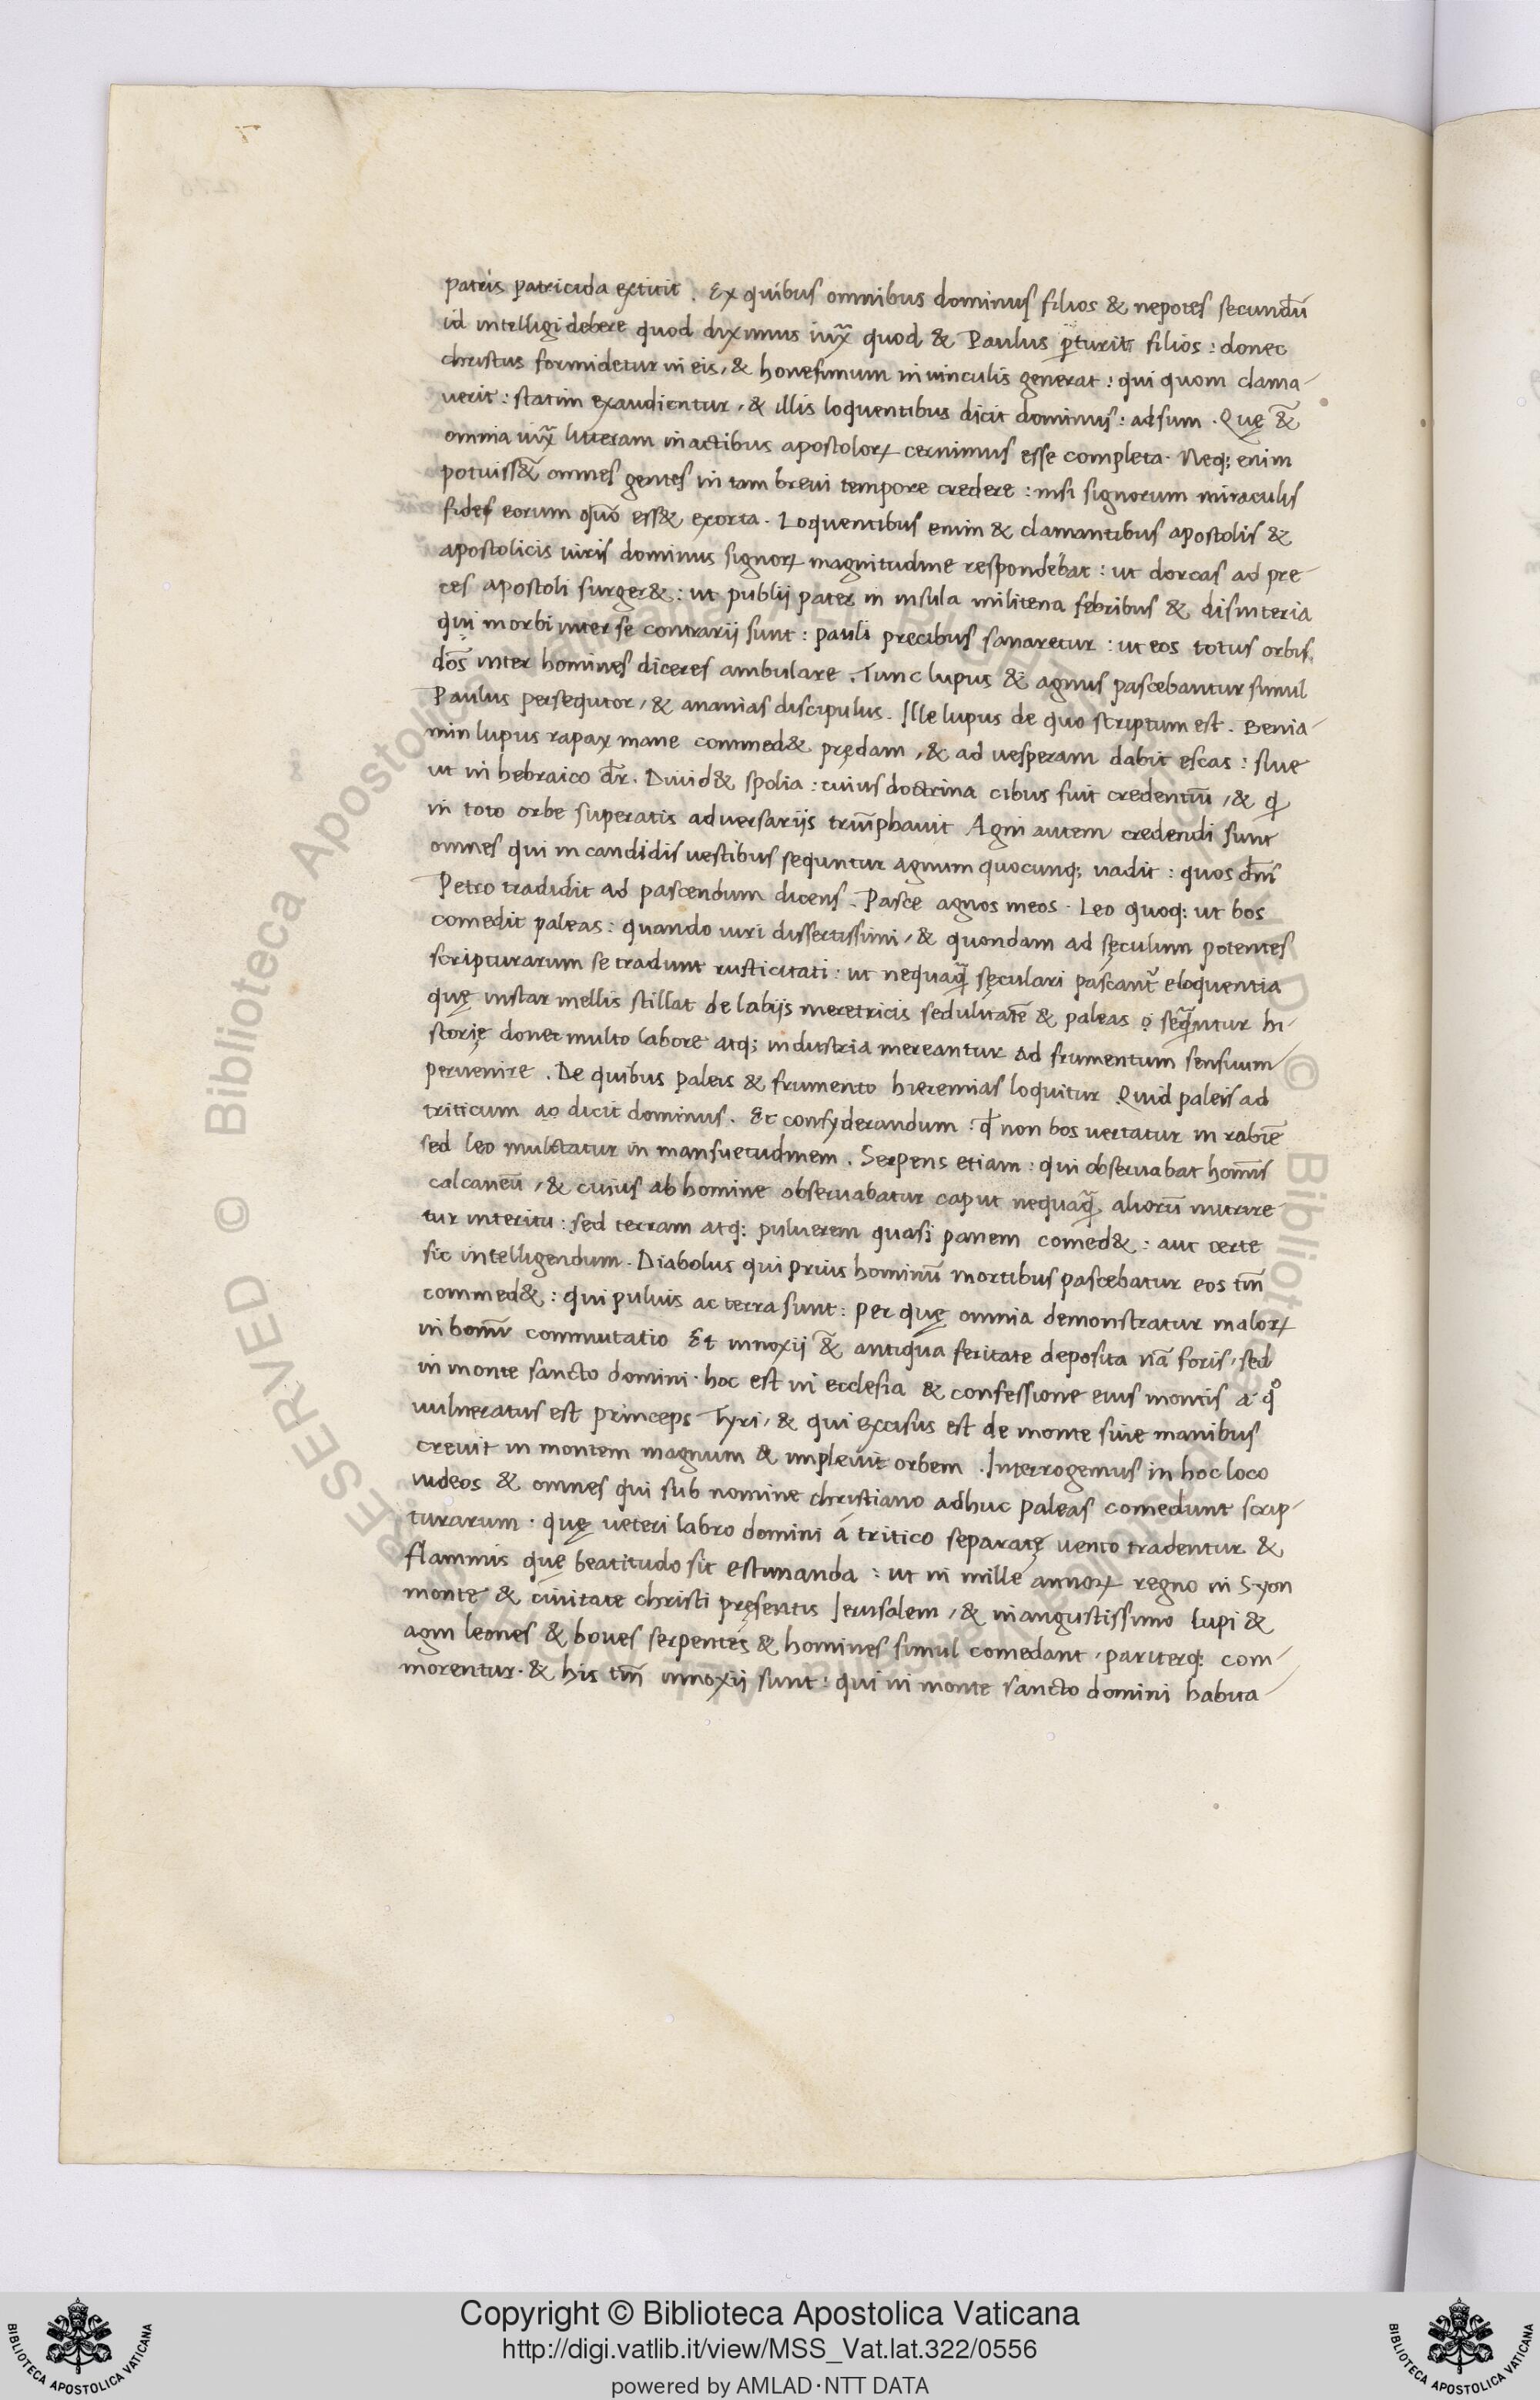 patris patricida extitit . Ex quibus omnibus dominus filios & nepotes secundũ
id intelligi debere quod diximus iux̃ quod & Paulus ꝑturit filios : donec
christus formidetur in eis, & honesimum in uinculis generat : qui quom clama-
uerit : statim exaudientur , & illis loquentibus dicit dominus : adsum . Quę &̃
omnia iux̃ litteram in actibus apostoloꝝ cernimus esse completa . Neq; enim
potuiss&̃ omnes gentes in tam breui tempore credere : nisi signorum miraculis
fides eorum quõ ess& exorta . Loquentibus enim & clamantibus apostolis &
apostolicis uiris dominus signoꝝ magnitudine respondebat : ut dorcas ad pre
ces apostoli surger& : ut publij pater in insula militena febribus & disinteria
qui morbi inter se contrarij sunt : pauli precibus sanaretur : ut eos totus orbis
dõs inter homines diceres ambulare . Tunc lupus & agnus pascebantur simul
Paulus persequtor , & ananias discipulus . Ille lupus de quo scriptum est . Benia-
min lupus rapax mane commed& prędam , & ad uesperam dabit escas : siue
ut in hebraico dr̃ . Diuid& spolia : cuius doctrina cibus fuit credentiũ , & ꝗ
in toto orbe superatis aduersarijs triũphauit Agni autem credendi sunt
omnes qui in candidis uestibus sequntur agnum quocunq; uadit : quos dñs
Petro tradidit ad pascendum dicens . Pasce agnos meos . Leo quoq; ut bos
comedit paleas : quando uiri dissertissimi , & quondam ad sęculum potentes
scripturarum se tradunt rusticitati : ut nequaꝗ̃ sęculari pascant̃ eloquentia
quę instar mellis stillat de labijs meretricis sedulitatẽ & paleas sequntur hi-
storię donet multo labore atq; industria mereantur ad frumentum sensuum
peruenire . De quibus paleis & frumento hieremias loquitur Quid paleis ad
triticum ao dicit dominus . Et consyderandum : ꝙ non bos uertatur in rabiẽ
sed leo mulctatur in mansuetudinem . Serpens etiam : qui obseruabat homĩs
calcaneũ , & cuius ab homine obseruabatur caput nequaꝗ̃ aliorũ nutrire
tur interitu : sed terram atq; puluerem quasi panem comed& : aut certe
sic intelligendum . Diabolus qui prius hominũ mortibus pascebatur eos tm̃
commed& : qui puluis ac terra sunt : per quę omnia demonstratur maloꝝ
in commutatio Et innoxij &̃ antiqua feritate deposita nõ foris , sed
in monte sancto domini . hoc est in ecclesia & confessione eius montis a qͦ
uulneratus est princeps Tyri , & qui excisus est de monte sine manibus
creuit in montem magnum & impleuit orbem . Interrogemus in hoc loco
iudeos & omnes qui sub nomine christiano adhuc paleas comedunt scrip-
turarum . quę ueteri labro domini á tritico separatę uento tradentur &
flammis quę beatitudo sit estimanda : ut in mille annoꝝ regno in Syon
monte & ciuitate christi pręsentis Ierusalem , & in angustissimo lupi &
agni leones & boues serpentes & homines simul comedant , pariterq; com-
morentur . & his tm̃ innoxij sunt : qui in monte sancto domini habita-
© Biblioteca Apostolica Vaticana
Copyright © Biblioteca Apostolica Vaticana
http://digi.vatlib.it/view/MSS_Vat.lat.322/0556
powered by AMLAD·NTT DATA
BIBLIOTECA APOSTOLICA VATICANA
BIBLIOTECA APOSTOLICA VATICANA